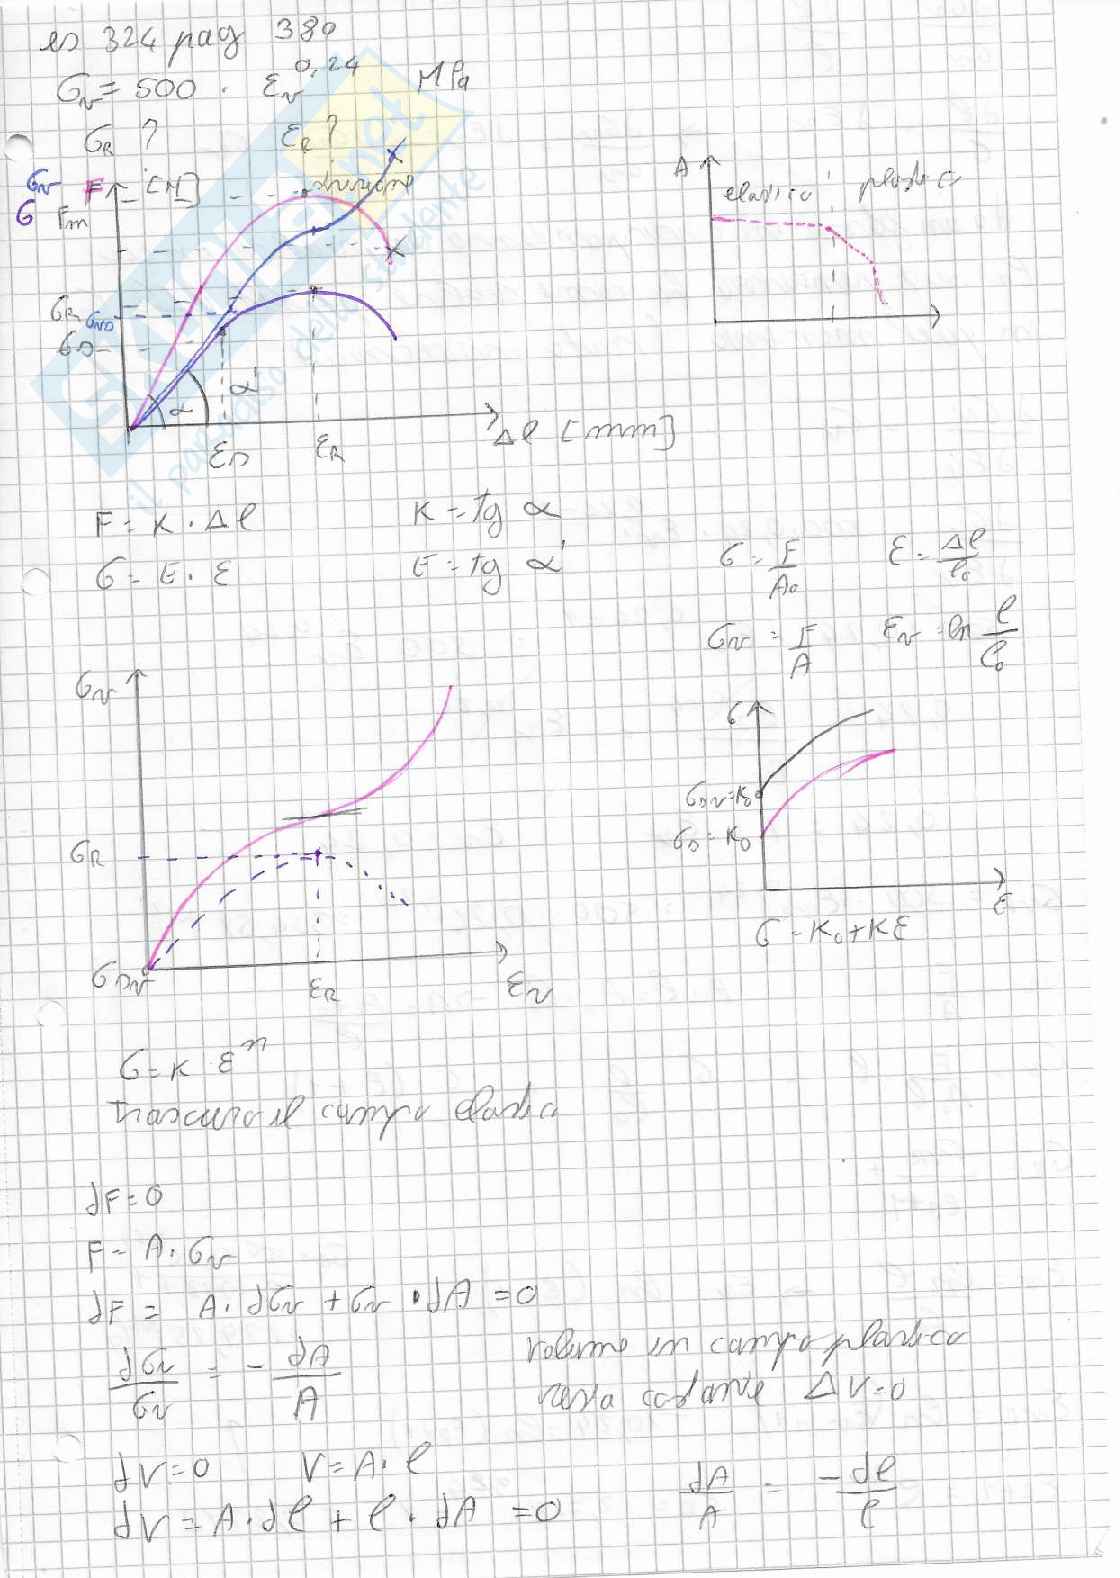 es 324 pag 380
σv = 500 · εv^0,24 MPa
σR ? εR ?
σv F [N] strizione
σ Fm
σR σvD
σD
α α'
εD εR
Δl [mm]
A
elastico plastico
F = K · Δl K = tg α
σ = E · ε E = tg α'
σ = F/A0 ε = Δl/l0
σv = F/A εv = ln l/l0
σv
σR
σDv
εR εv
σ
σDv = K0
σD = K0
ε
σ = K0 + Kε
σ = K ε^n
trascuro il campo elastico
dF = 0
F = A · σv
dF = A · dσv + σv · dA = 0
dσv/σv = - dA/A
volume in campo plastico
resta costante ΔV = 0
dV = 0 V = A · l
dV = A · dl + l · dA = 0
dA/A = - dl/l
SKUOLA.net
il paradiso dello studente